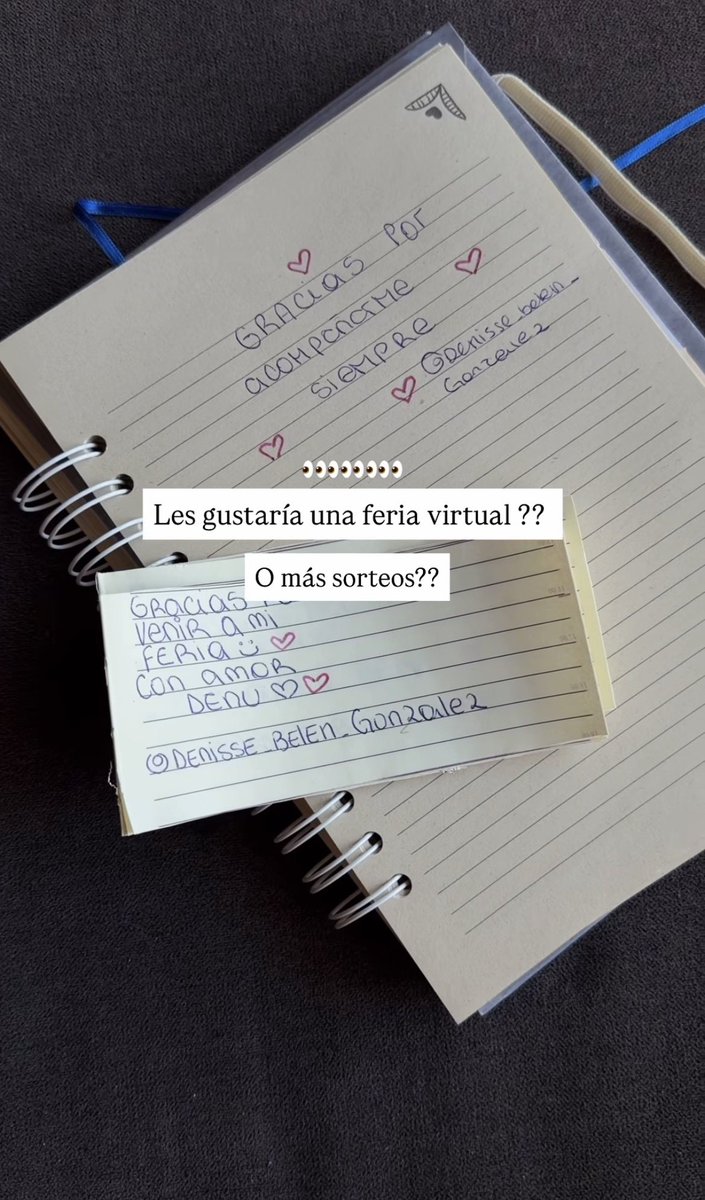 GRACIAS POR
ACOMPAÑARME
SIEMPRE
@Denisse_belen_
Gonzalez
👀👀👀👀
Les gustaría una feria virtual ??
O más sorteos??
GRACIAS
VENIR A MI
FERIA
CON AMOR
DENU
@DENISSE_BELEN_GONZALEZ